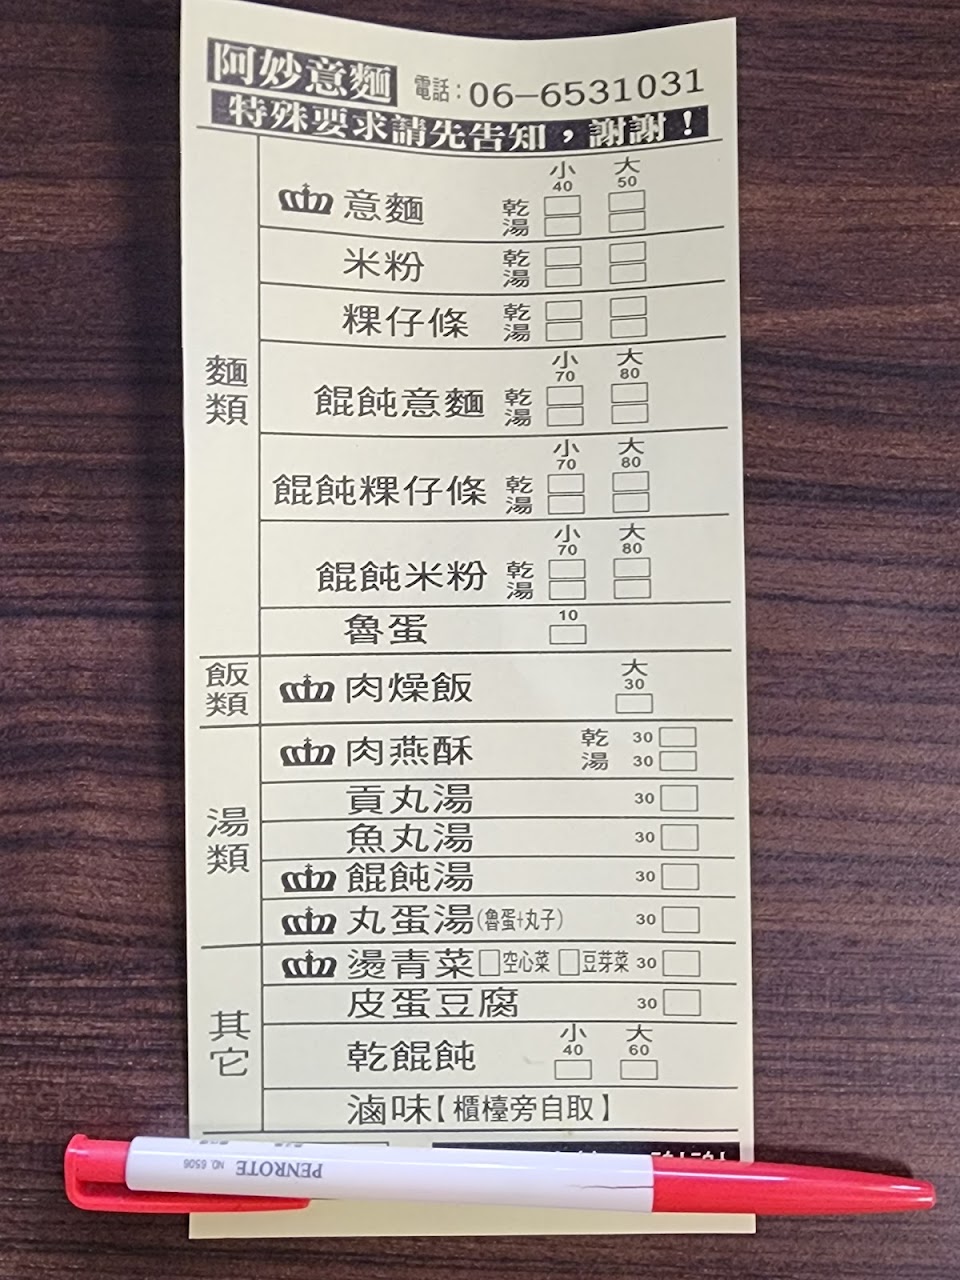 阿妙意麵 電話：06-6531031
特殊要求請先告知，謝謝！
麵類
小 大
40 50
意麵 乾
湯
米粉 乾
湯
粿仔條 乾
湯
小 大
70 80
餛飩意麵 乾
湯
小 大
70 80
餛飩粿仔條 乾
湯
小 大
70 80
餛飩米粉 乾
湯
魯蛋 10
飯類
大
肉燥飯 30
湯類
肉燕酥 乾 30
湯 30
貢丸湯 30
魚丸湯 30
餛飩湯 30
丸蛋湯(魯蛋+丸子) 30
其它
燙青菜 空心菜 豆芽菜 30
皮蛋豆腐 30
小 大
乾餛飩 40 60
滷味【櫃檯旁自取】
PENROTE NO. 6506